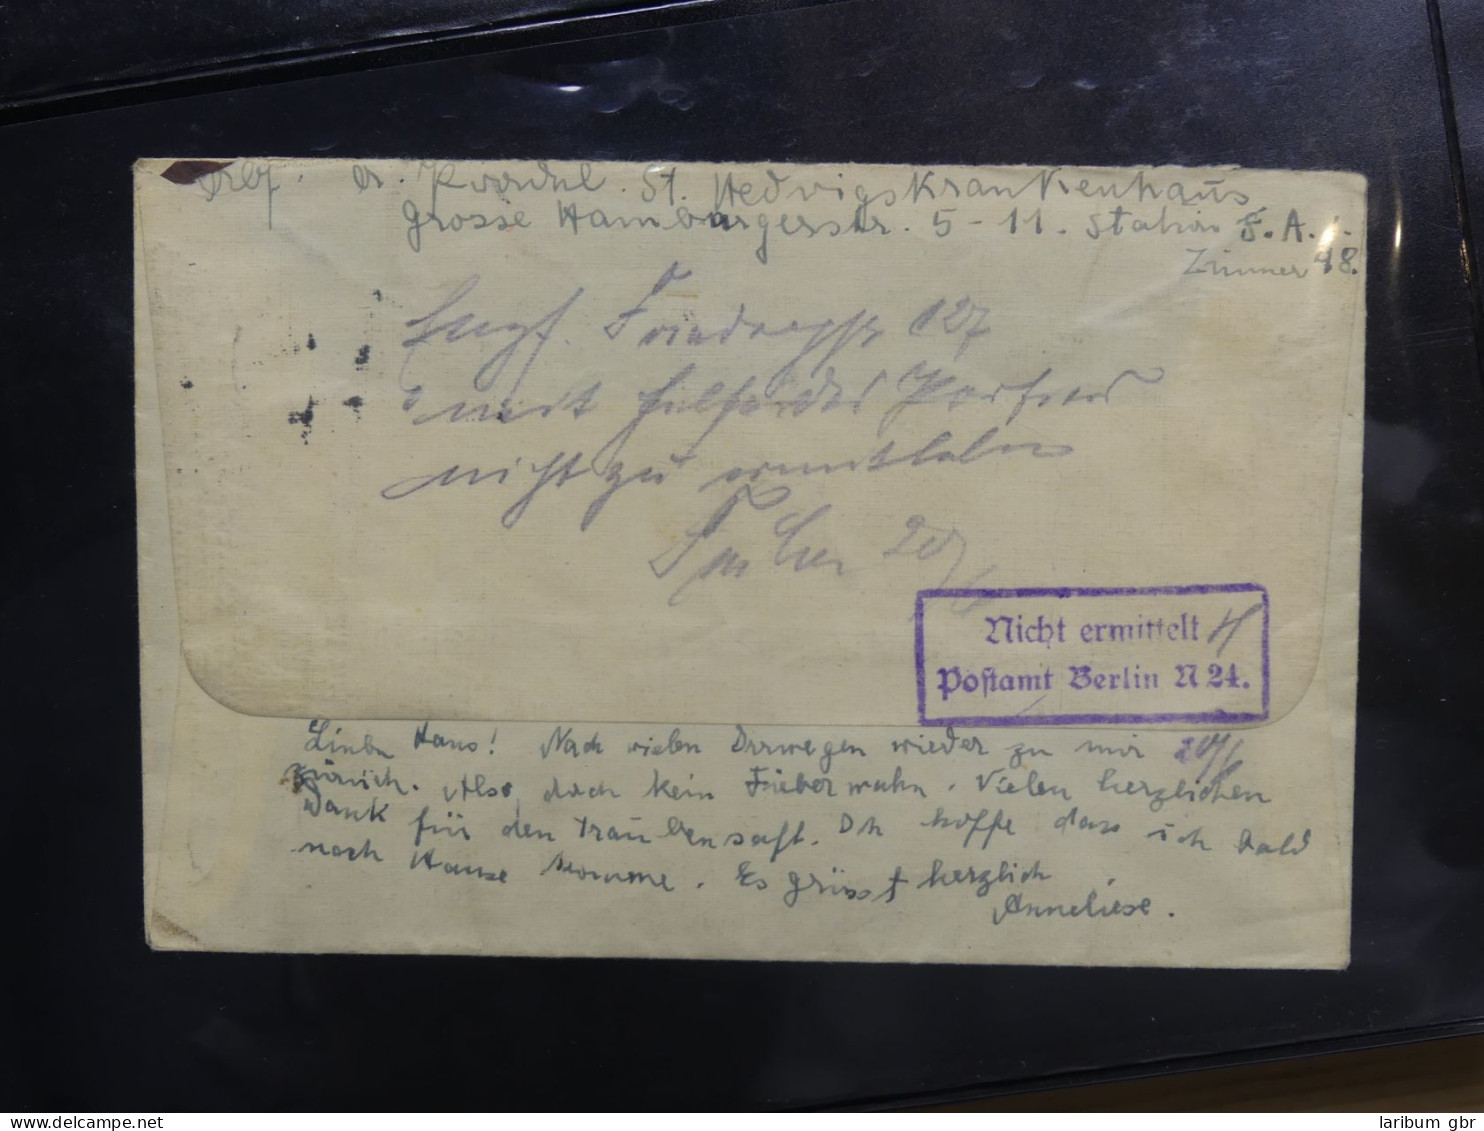 St. Hedwigskrankenhaus
Grosse Hamburgerstr. 5-11. Station F. A.
Zimmer 48.
Empf. 127
mit Hilfe des
nicht zu ermitteln
20/
Nicht ermittelt
Postamt Berlin N 24.
Lieber Hans! Nach vielen Irrwegen wieder zu mir
zurück. Also doch kein Fieberwahn. Vielen herzlichen
Dank für den Traubensaft. Ich hoffe dass ich bald
nach Hause komme. Es grüsst herzlich
Anneliese.
laribum gbr